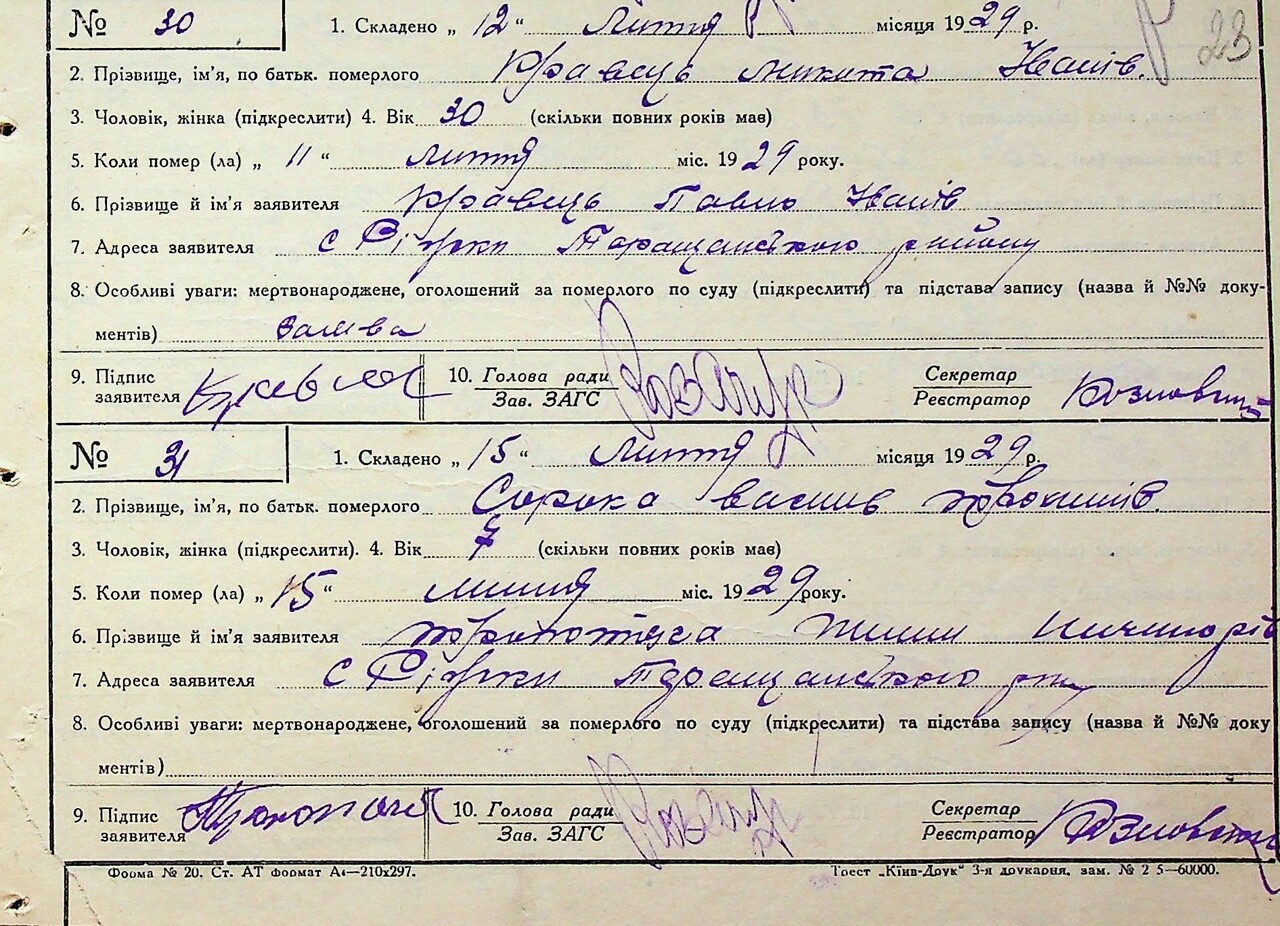 № 30 1. Складено „ 12 “ лютня місяця 19 29 р. 23
2. Прізвище, ім’я, по батьк. померлого Кравець Микита Іванів.
3. Чоловік, жінка (підкреслити) 4. Вік 30 (скільки повних років має)
5. Коли помер (ла) „ 11 “ лютня міс. 19 29 року.
6. Прізвище й ім’я заявителя Кравець Павло Іванів
7. Адреса заявителя с Ріжки Таращанського району
8. Особливі уваги: мертвонароджене, оголошений за померлого по суду (підкреслити) та підстава запису (назва й №№ доку-
ментів) заява
9. Підпис заявителя 10. Голова ради Секретар
Зав. ЗАГС Реєстратор
№ 31 1. Складено „ 15 “ лютня місяця 19 29 р.
2. Прізвище, ім’я, по батьк. померлого Сорока Василь
3. Чоловік, жінка (підкреслити). 4. Вік 7 (скільки повних років має)
5. Коли помер (ла) „ 15 “ міс. 19 29 року.
6. Прізвище й ім’я заявителя
7. Адреса заявителя с Ріжки Таращанського
8 Особливі уваги: мертвонароджене, оголошений за померлого по суду (підкреслити) та підстава запису (назва й №№ доку
ментів)
9. Підпис заявителя 10. Голова ради Секретар
Зав. ЗАГС Реєстратор
Форма № 20. Ст. АТ формат А4—210х297. Трест „Київ-Друк“ 3-я друкарня, зам. № 2 5—60000.